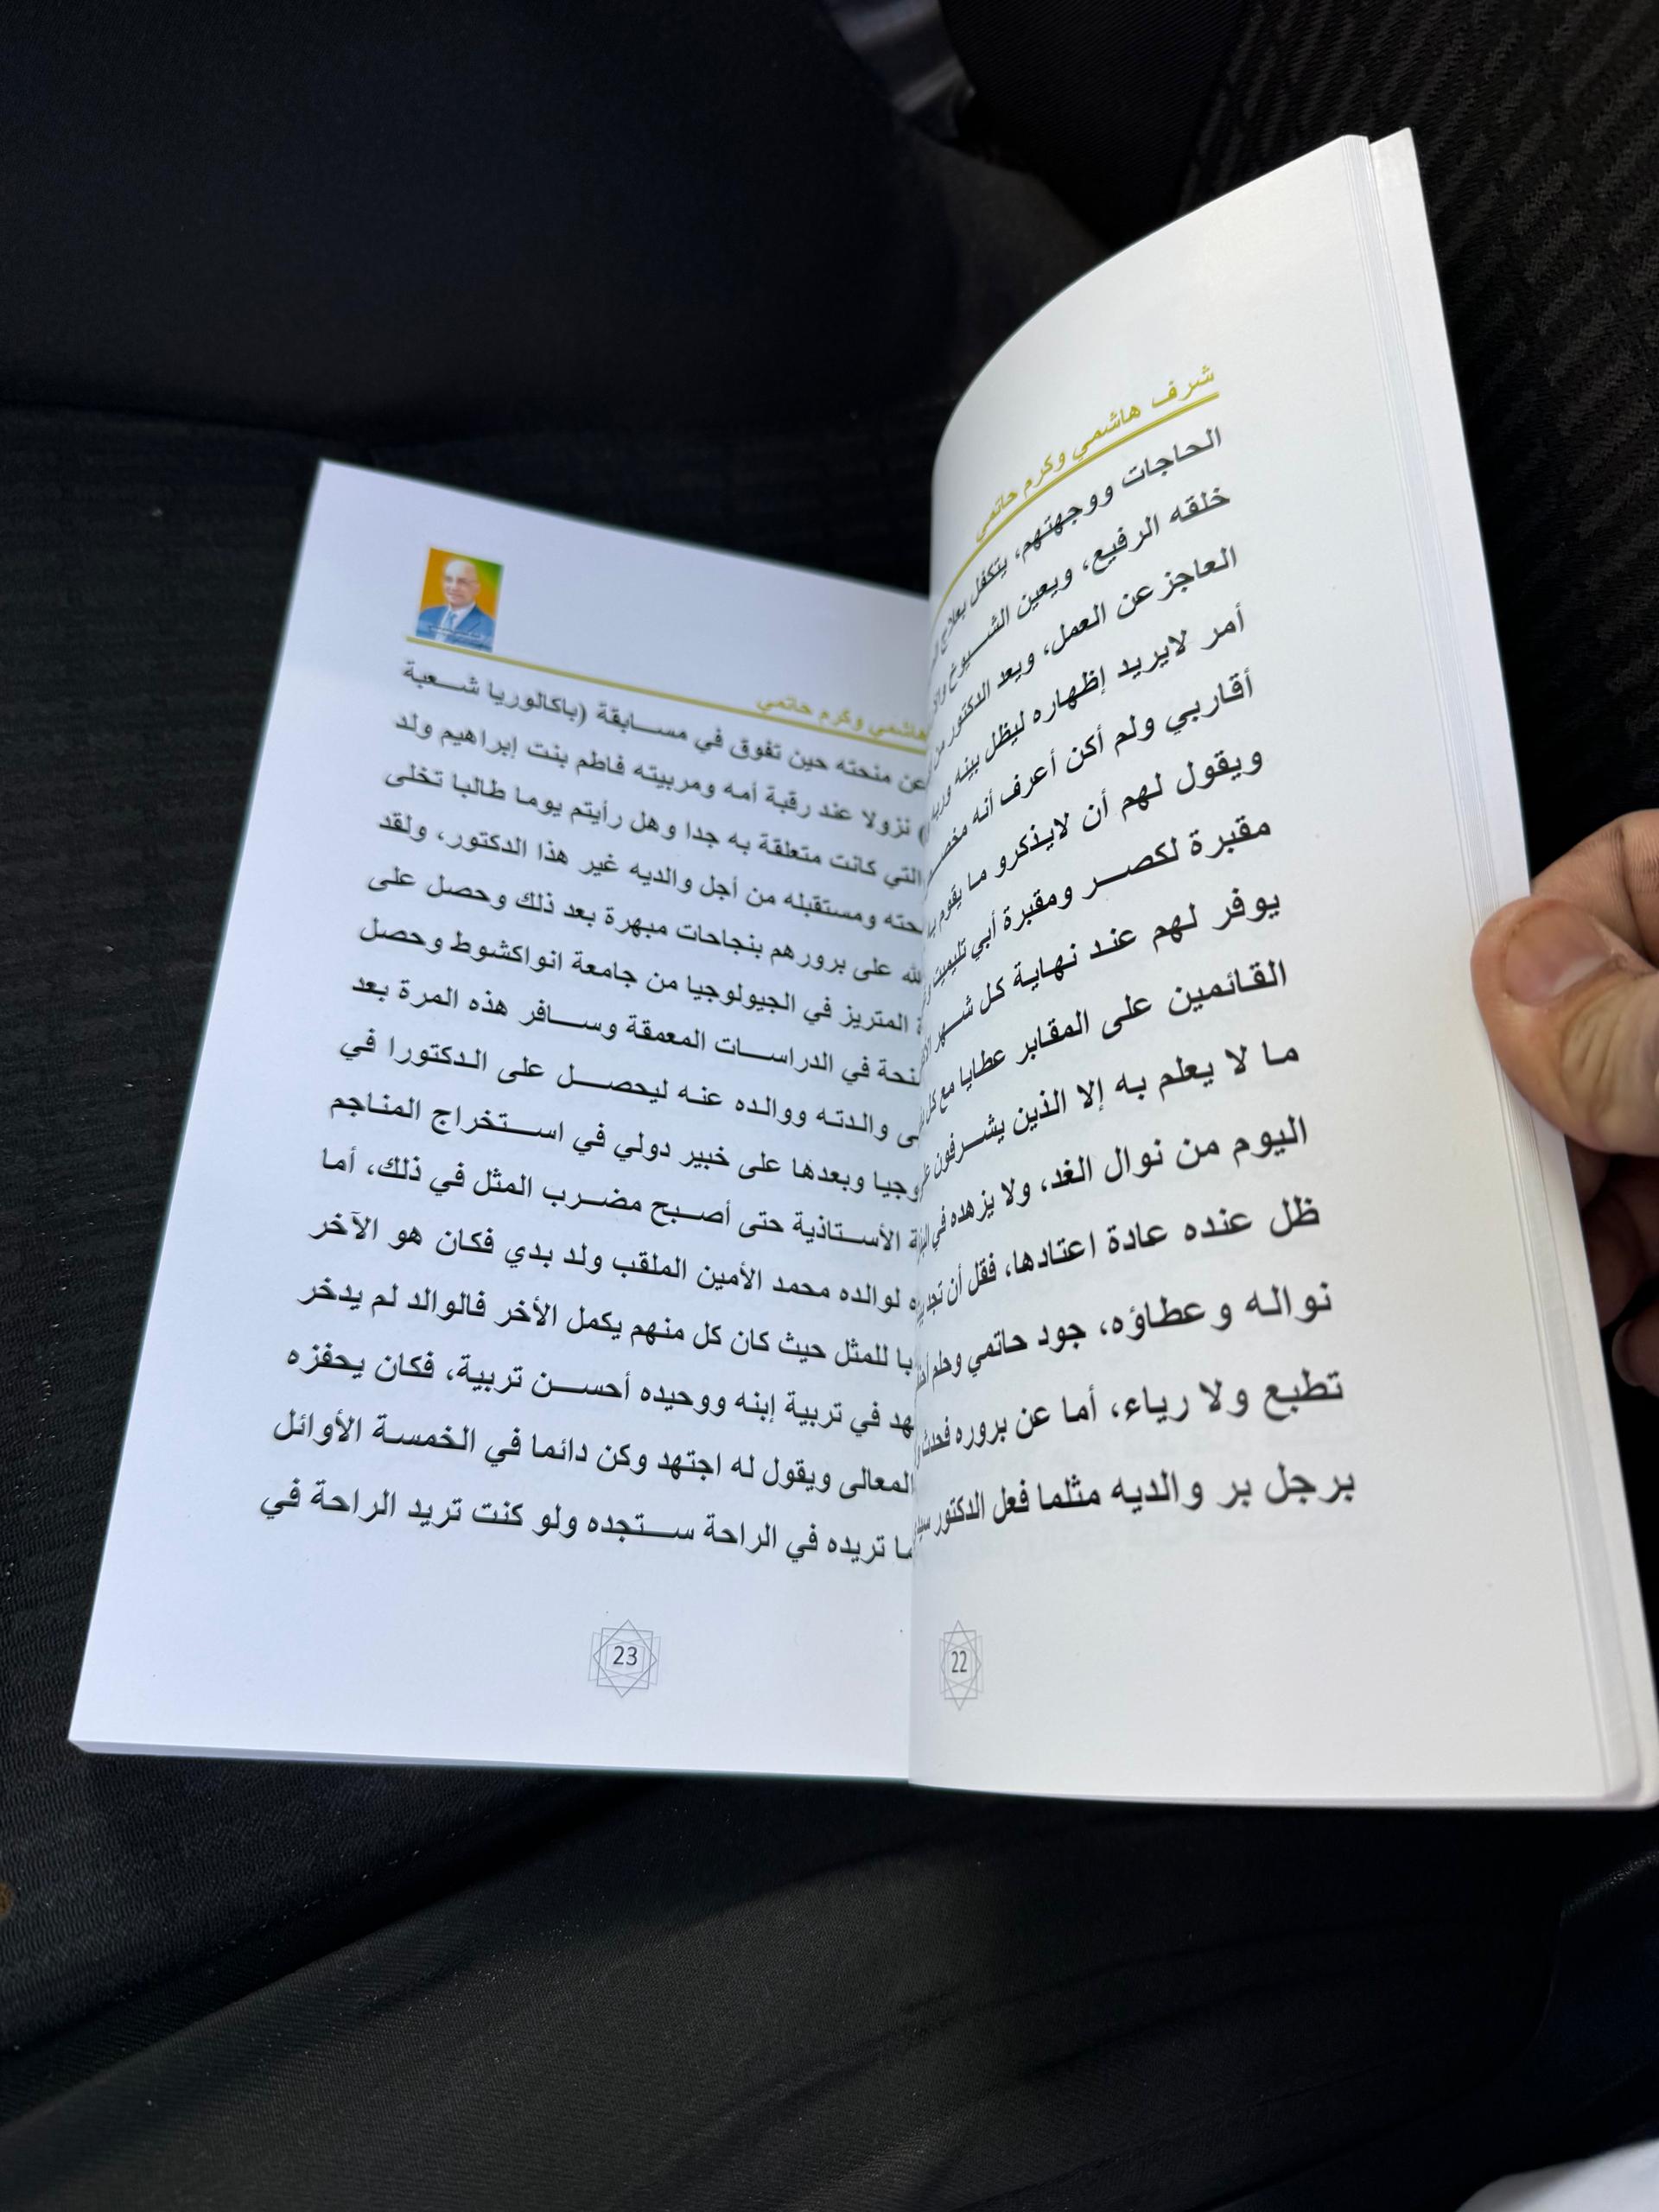 شرف هاشمي وكرم حاتمي
الحاجات ووجهتهم، يتكفل بعلاج
خلقه الرفيع، ويعين الشيوخ
العاجز عن العمل، ويعد الدكتور من
أمر لايريد إظهاره ليظل بينه
أقاربي ولم أكن أعرف أنه
ويقول لهم أن لايذكرو ما يقوم
مقبرة لكصر ومقبرة أبي تلميت
يوفر لهم عند نهاية كل شهر
القائمين على المقابر عطايا مع كل
ما لا يعلم به إلا الذين يشرفون
اليوم من نوال الغد، ولا يزهده في
ظل عنده عادة اعتادها، فقل أن تجد
نواله وعطاؤه، جود حاتمي وحلم
تطبع ولا رياء، أما عن بروره فحدث
برجل بر والديه مثلما فعل الدكتور
22
هاشمي وكرم حاتمي
عن منحته حين تفوق في مسابقة (باكالوريا شعبة
) نزولا عند رقبة أمه ومربيته فاطم بنت إبراهيم ولد
التي كانت متعلقة به جدا وهل رأيتم يوما طالبا تخلى
ومستقبله من أجل والديه غير هذا الدكتور، ولقد
على برورهم بنجاحات مبهرة بعد ذلك وحصل على
المتريز في الجيولوجيا من جامعة انواكشوط وحصل
في الدراسات المعمقة وسافر هذه المرة بعد
والدته ووالده عنه ليحصل على الدكتورا في
وبعدها على خبير دولي في استخراج المناجم
الأستاذية حتى أصبح مضرب المثل في ذلك، أما
لوالده محمد الأمين الملقب ولد بدي فكان هو الآخر
للمثل حيث كان كل منهم يكمل الأخر فالوالد لم يدخر
في تربية إبنه ووحيده أحسن تربية، فكان يحفزه
المعالى ويقول له اجتهد وكن دائما في الخمسة الأوائل
تريده في الراحة ستجده ولو كنت تريد الراحة في
23